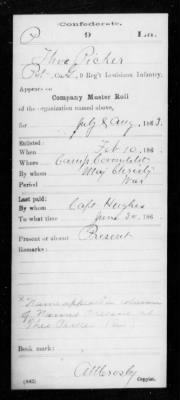 Confederate.
P 9 La.
Theo Picker
Pvt, Co. , 9 Reg't Louisiana Infantry.
Appears on
Company Muster Roll
of the organization named above,
for July & Aug, 1863.
Enlisted:
When Feb 10, 186
Where Camp
By whom Maj
Period War
Last paid:
By whom Capt Hughes
To what time June 30, 186
Present or absent Present
Remarks:
* Name appears in column
of Names Present as
Theo
Book mark:
(642) Copyist.